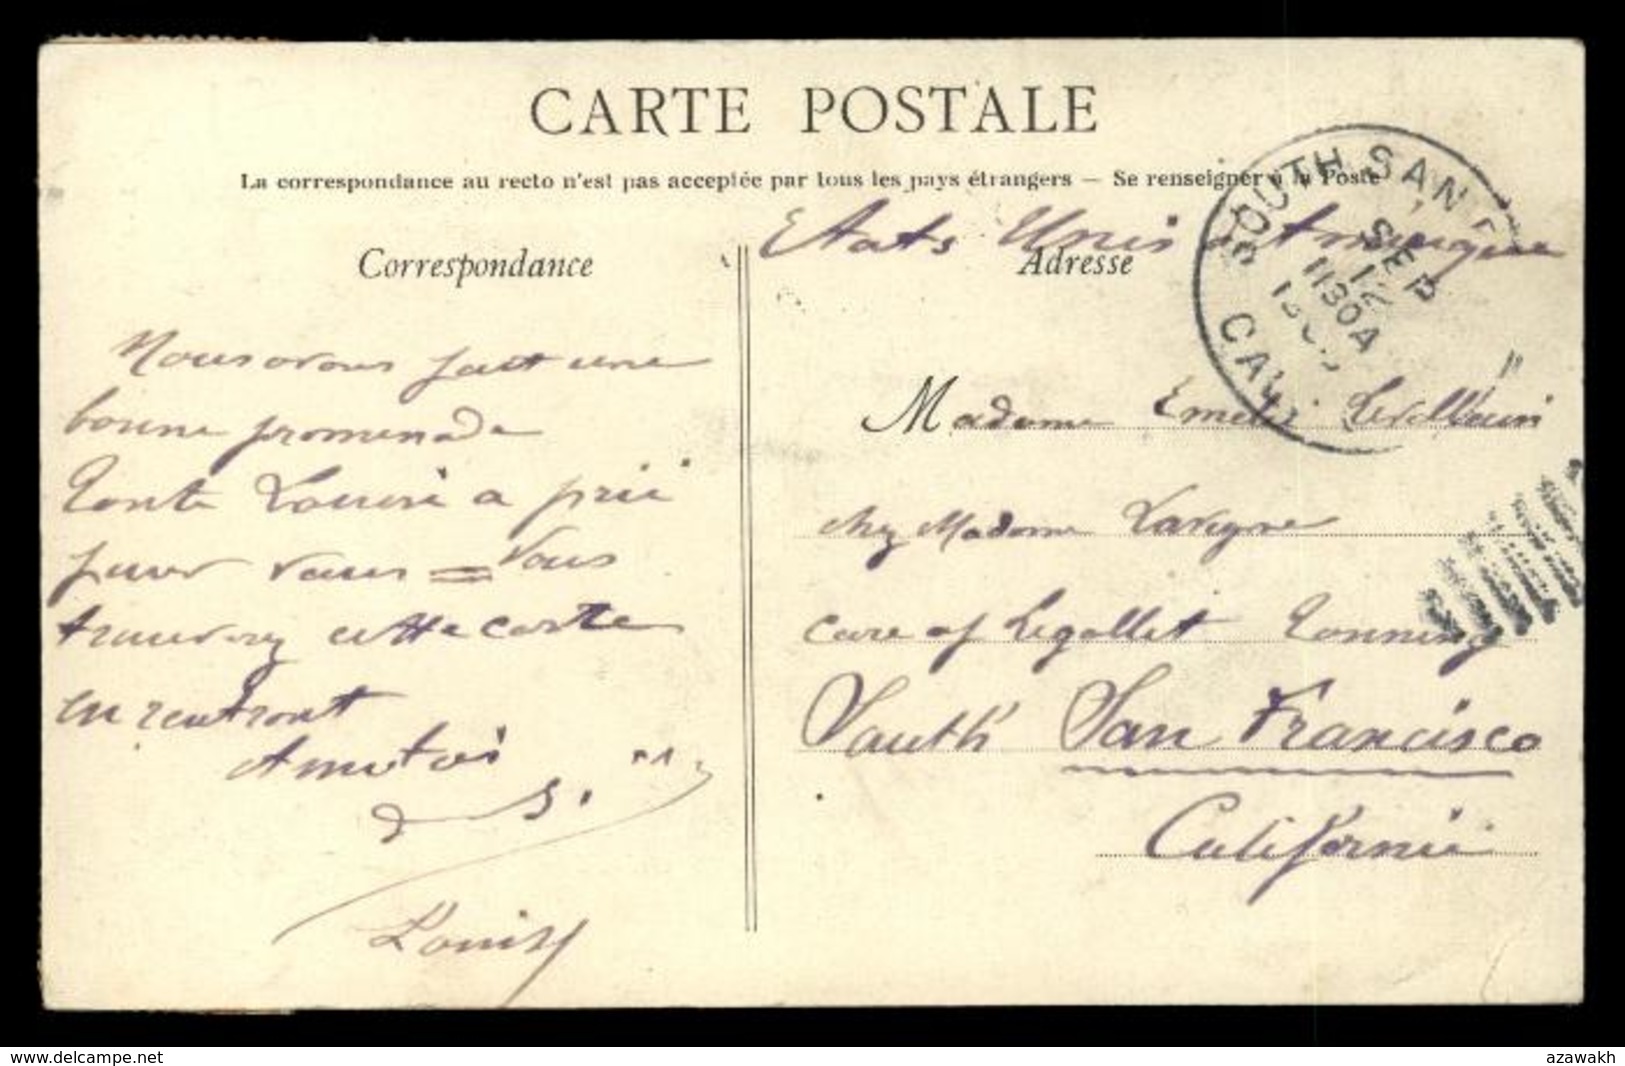 CARTE POSTALE
La correspondance au recto n'est pas acceptée par tous les pays étrangers — Se renseigner à la Poste
Correspondance
Nous avons fait une
bonne promenade
Tante Louise a prié
pour vous = Vous
trouverez cette carte
en rentrant
Amitiés
Louis
Etats Unis Amérique
Adresse
SOUTH SAN F
CAL
SEP
12
1130A
Madame
chez Madame Lavigne
care of Legallet Tanning
South San Francisco
Californie
www.delcampe.net
azawakh